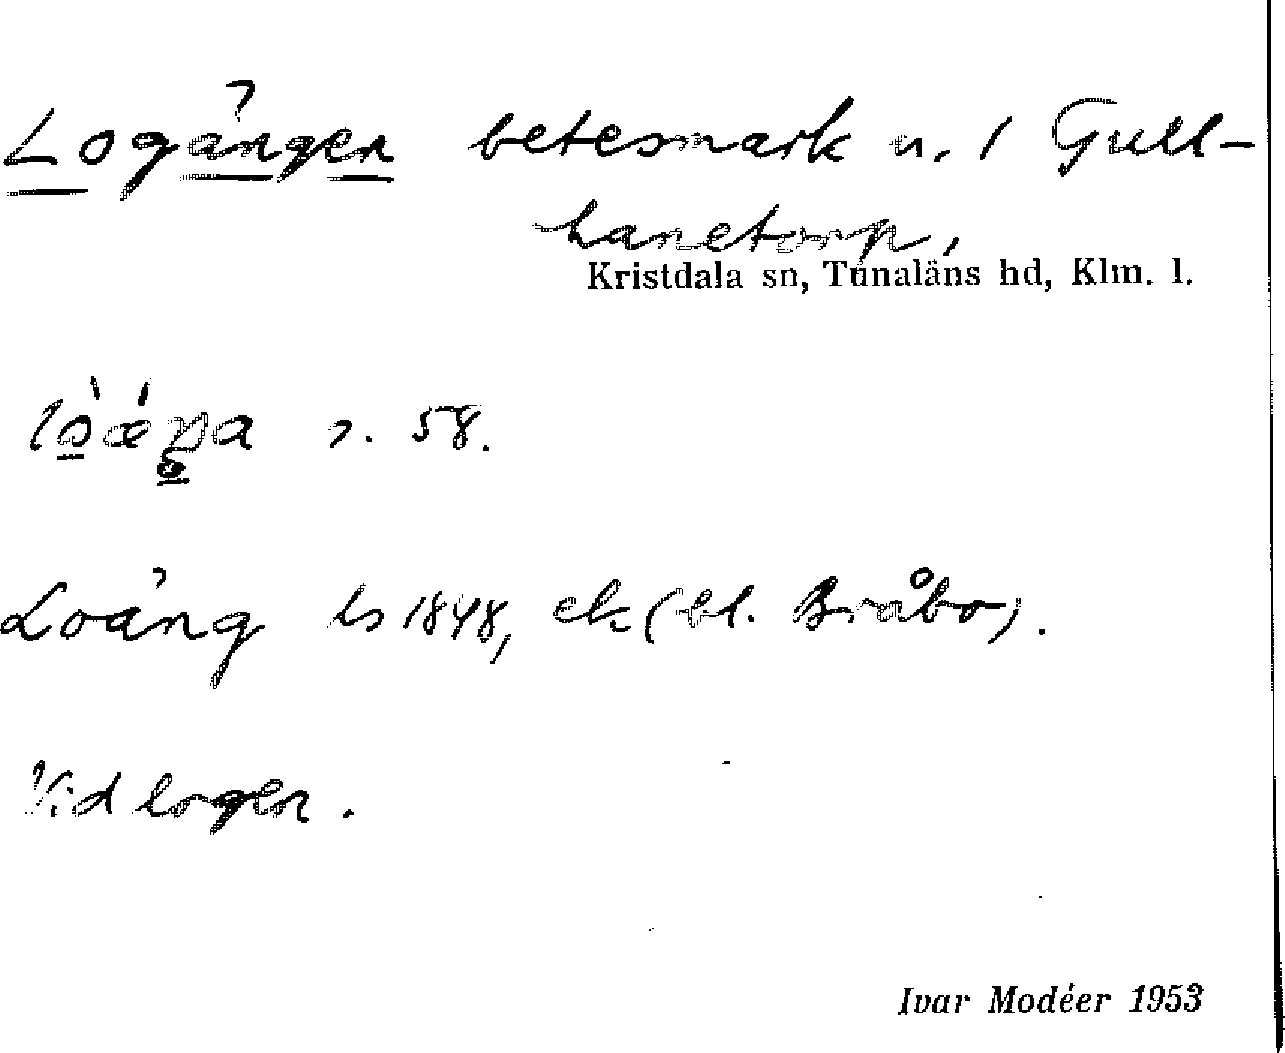 Logången betesmark u. 1 Gull-
hanetorp,
Kristdala sn, Tunaläns hd, Klm. l.
s. 58.
Loäng ls 1848, ek (bl. Bråbo).
Vid logen.
Ivar Modéer 1953